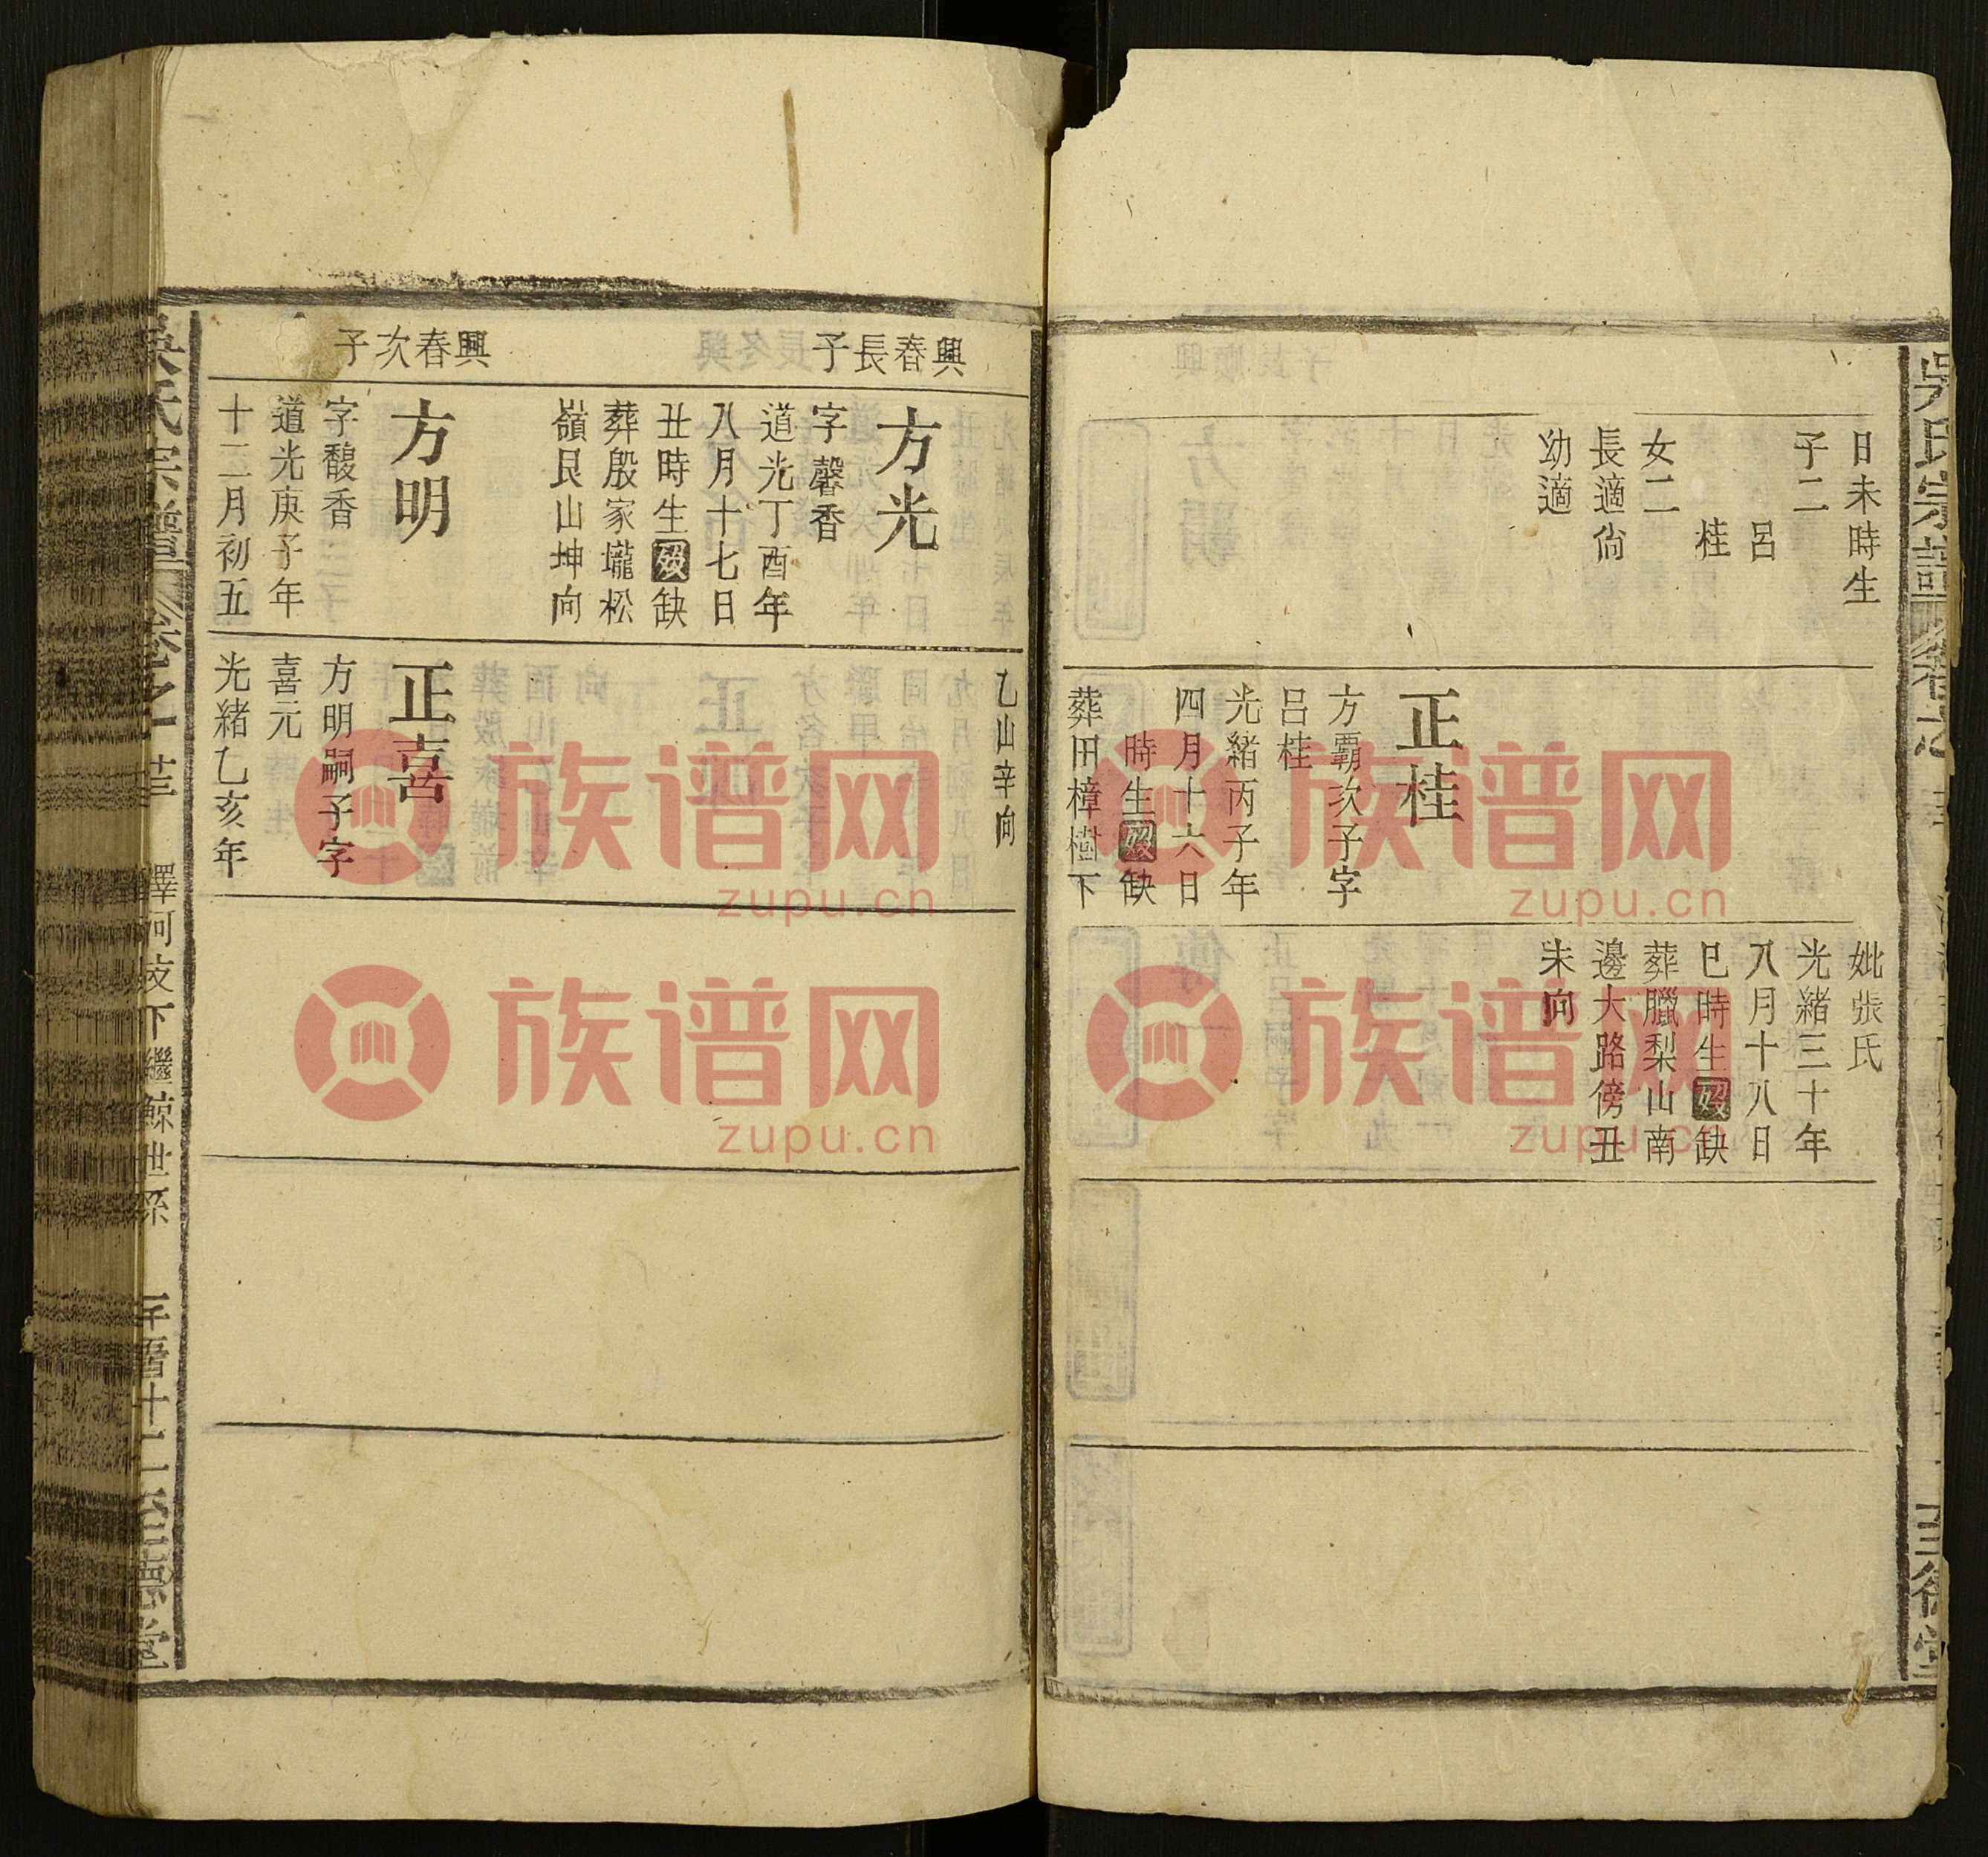 日未時生
子二
呂
桂
女二
長適尙
幼適
正桂
方霸次子字
呂桂
光緒丙子年
四月十六日
時生歿缺
葬田樟樹下
妣張氏
光緒三十年
八月十八日
巳時生歿缺
葬臘梨山南
邊大路傍丑
未向
興春長子
方光
字馨香
道光丁酉年
八月十七日
丑時生歿缺
葬殷家壠松
嶺艮山坤向
乙山辛向
興春次子
方明
字馥香
道光庚子年
十二月初五
正喜
方明嗣子字
喜元
光緒乙亥年
吳氏宗譜
卷之
下繼鯨世系
至德堂
族谱网
zupu.cn
族谱网
zupu.cn
族谱网
zupu.cn
族谱网
zupu.cn